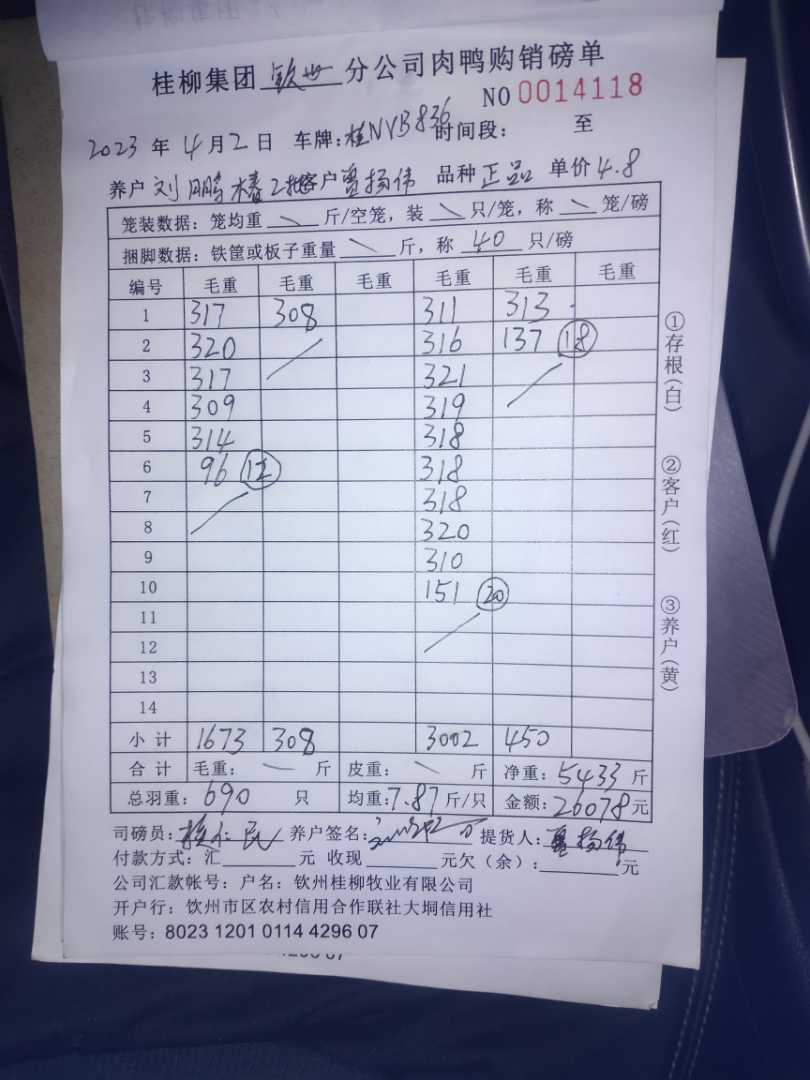 桂柳集团 钦州 分公司肉鸭购销磅单
NO 0014118
2023 年 4 月 2 日 车牌: 桂NVB836 时间段: 至
养户 刘鹏 客户 曾扬伟 品种 正品 单价 4.8
笼装数据: 笼均重 斤/空笼, 装 只/笼, 称 笼/磅
捆脚数据: 铁筐或板子重量 斤, 称 40 只/磅
编号 毛重 毛重 毛重 毛重 毛重 毛重
1 317 308 311 313
2 320 316 137 18
3 317 321
4 309 319
5 314 318
6 96 12 318
7 318
8 320
9 310
10 151 20
11
12
13
14
小计 1673 308 3002 450
合计 毛重: 斤 皮重: 斤 净重: 5433 斤
总羽重: 690 只 均重: 7.87 斤/只 金额: 26078 元
司磅员: 养户签名: 提货人: 曾扬伟
付款方式: 汇 元 收现 元欠(余): 元
公司汇款帐号: 户名: 钦州桂柳牧业有限公司
开户行: 饮州市区农村信用合作联社大垌信用社
账号: 8023 1201 0114 4296 07
①存根(白)
②客户(红)
③养户(黄)